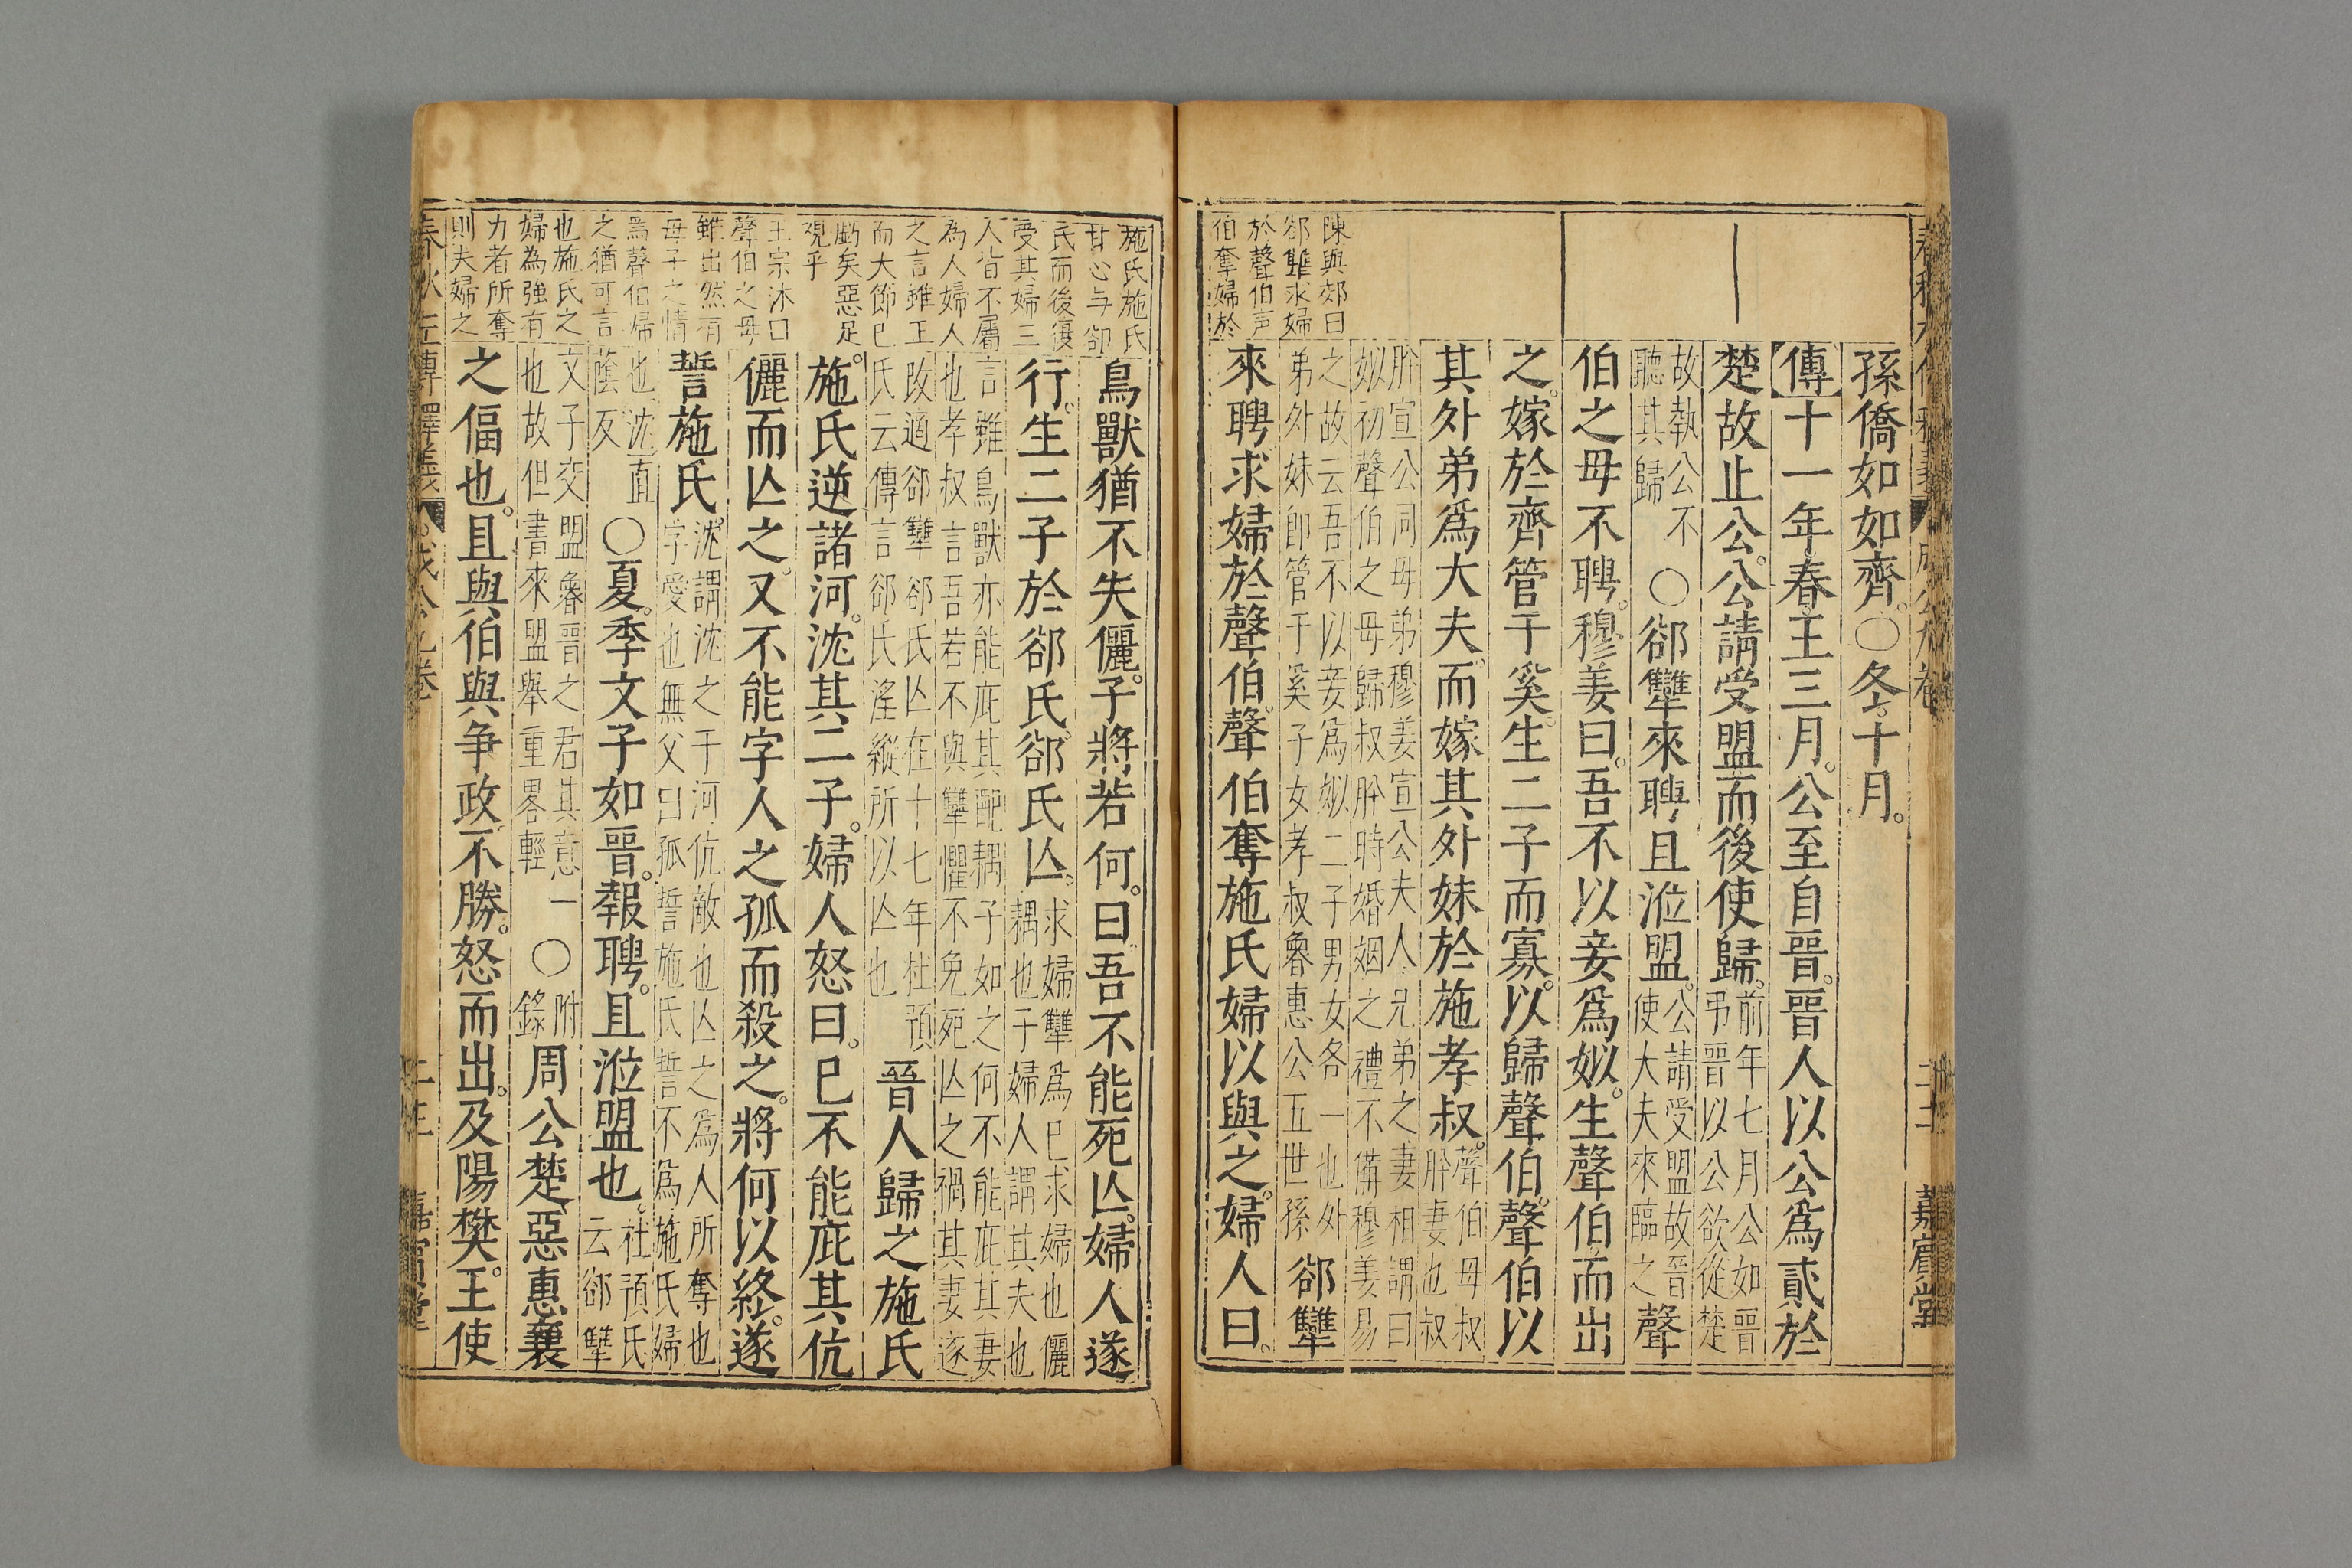 孫僑如如齊○冬十月
傳十一年春王三月公至自晉晉人以公爲貳於
楚故止公公請受盟而後使歸前年七月公如晉弔晉以公欲從楚
故執公不聽其歸○郤犨來聘且涖盟公請受盟故晉使大夫來臨之聲
伯之母不聘穆姜曰吾不以妾爲姒生聲伯而出
之嫁於齊管于奚生二子而寡以歸聲伯聲伯以
其外弟爲大夫而嫁其外妹於施孝叔聲伯母叔肸妻也叔
肸宣公同母弟穆姜宣公夫人兄弟之妻相謂曰姒初聲伯之母歸叔肸時婚姻之禮不備穆姜易
之故云吾不以妾爲姒二子男女各一也外弟外妹即管于奚子女孝叔魯惠公五世孫郤犨
來聘求婦於聲伯聲伯奪施氏婦以與之婦人曰
陳與郊曰
郤犨求婦
於聲伯声
伯奪婦於
嘉賓堂
施氏施氏
甘心与郤
氏而後復
受其婦三
人皆不屬
為人婦人
之言雖正
而大節已
虧矣惡足
覌乎
王宗沐曰
聲伯之母
雖出然有
母子之情
爲聲伯婦
之猶可言
也施氏之
婦為強有
力者所奪
則夫婦之
鳥獸猶不失儷子將若何曰吾不能死亾婦人遂
行生二子於郤氏郤氏亾求婦犨爲已求婦也儷耦也子婦人謂其夫也
言雖鳥獸亦能庇其配耦子如之何不能庇其妻也孝叔言吾若不與犨懼不免死亾之禍其妻遂
改適郤犨郤氏亾在十七年杜預氏云傳言郤氏淫縱所以亾也晉人歸之施氏
施氏逆諸河沈其二子婦人怒曰已不能庇其伉
儷而亾之又不能字人之孤而殺之將何以終遂
誓施氏沈謂沈之于河伉敵也亾之爲人所奪也字愛也無父曰孤誓施氏誓不爲施氏婦
也沈直蔭反○夏季文子如晉報聘且涖盟也杜預氏云郤犨
文子交盟魯晉之君其意一也故但書來盟舉重畧輕○附錄周公楚惡惠襄
之偪也且與伯與争政不勝怒而出及陽樊王使
春秋左傳釋義 成公九卷